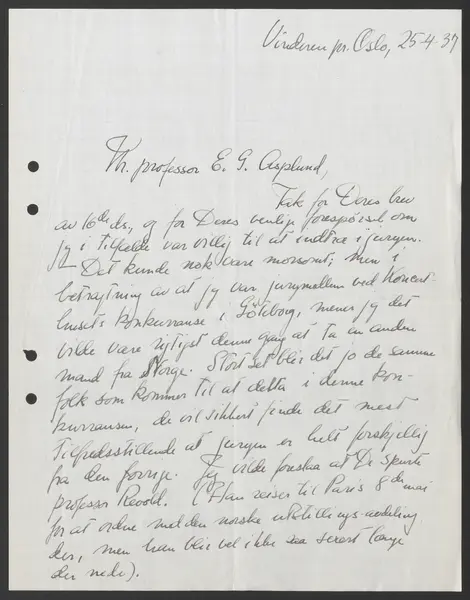 Vinderen pr. Oslo, 25-4-37
Hr. professor E. G. Asplund,
Takk for Deres brev
av 16de ds, og for Deres venlige forespørsel om
jeg i tilfelde var villig til at indtræ i juryen.
Det kunde nok være morsomt; men i
betragtning av at jeg var jurymedlem ved Koncert-
husets konkurranse i Göteborg, mener jeg det
vilde være rigtigst denne gang at ta en anden
mand fra Norge. Stort set blir det jo de samme
folk som kommer til at delta i denne kon-
kurransen, de vil sikkert finde det mest
tilfredsstillende at juryen er helt forskjellig
fra den forrige. Jeg vilde foreslaa at De spurte
professor Revold. (Han reiser til Paris 8de mai
for at ordne med den norske utstillings-avdeling
der, men han blir vel ikke saa svært længe
der nede).